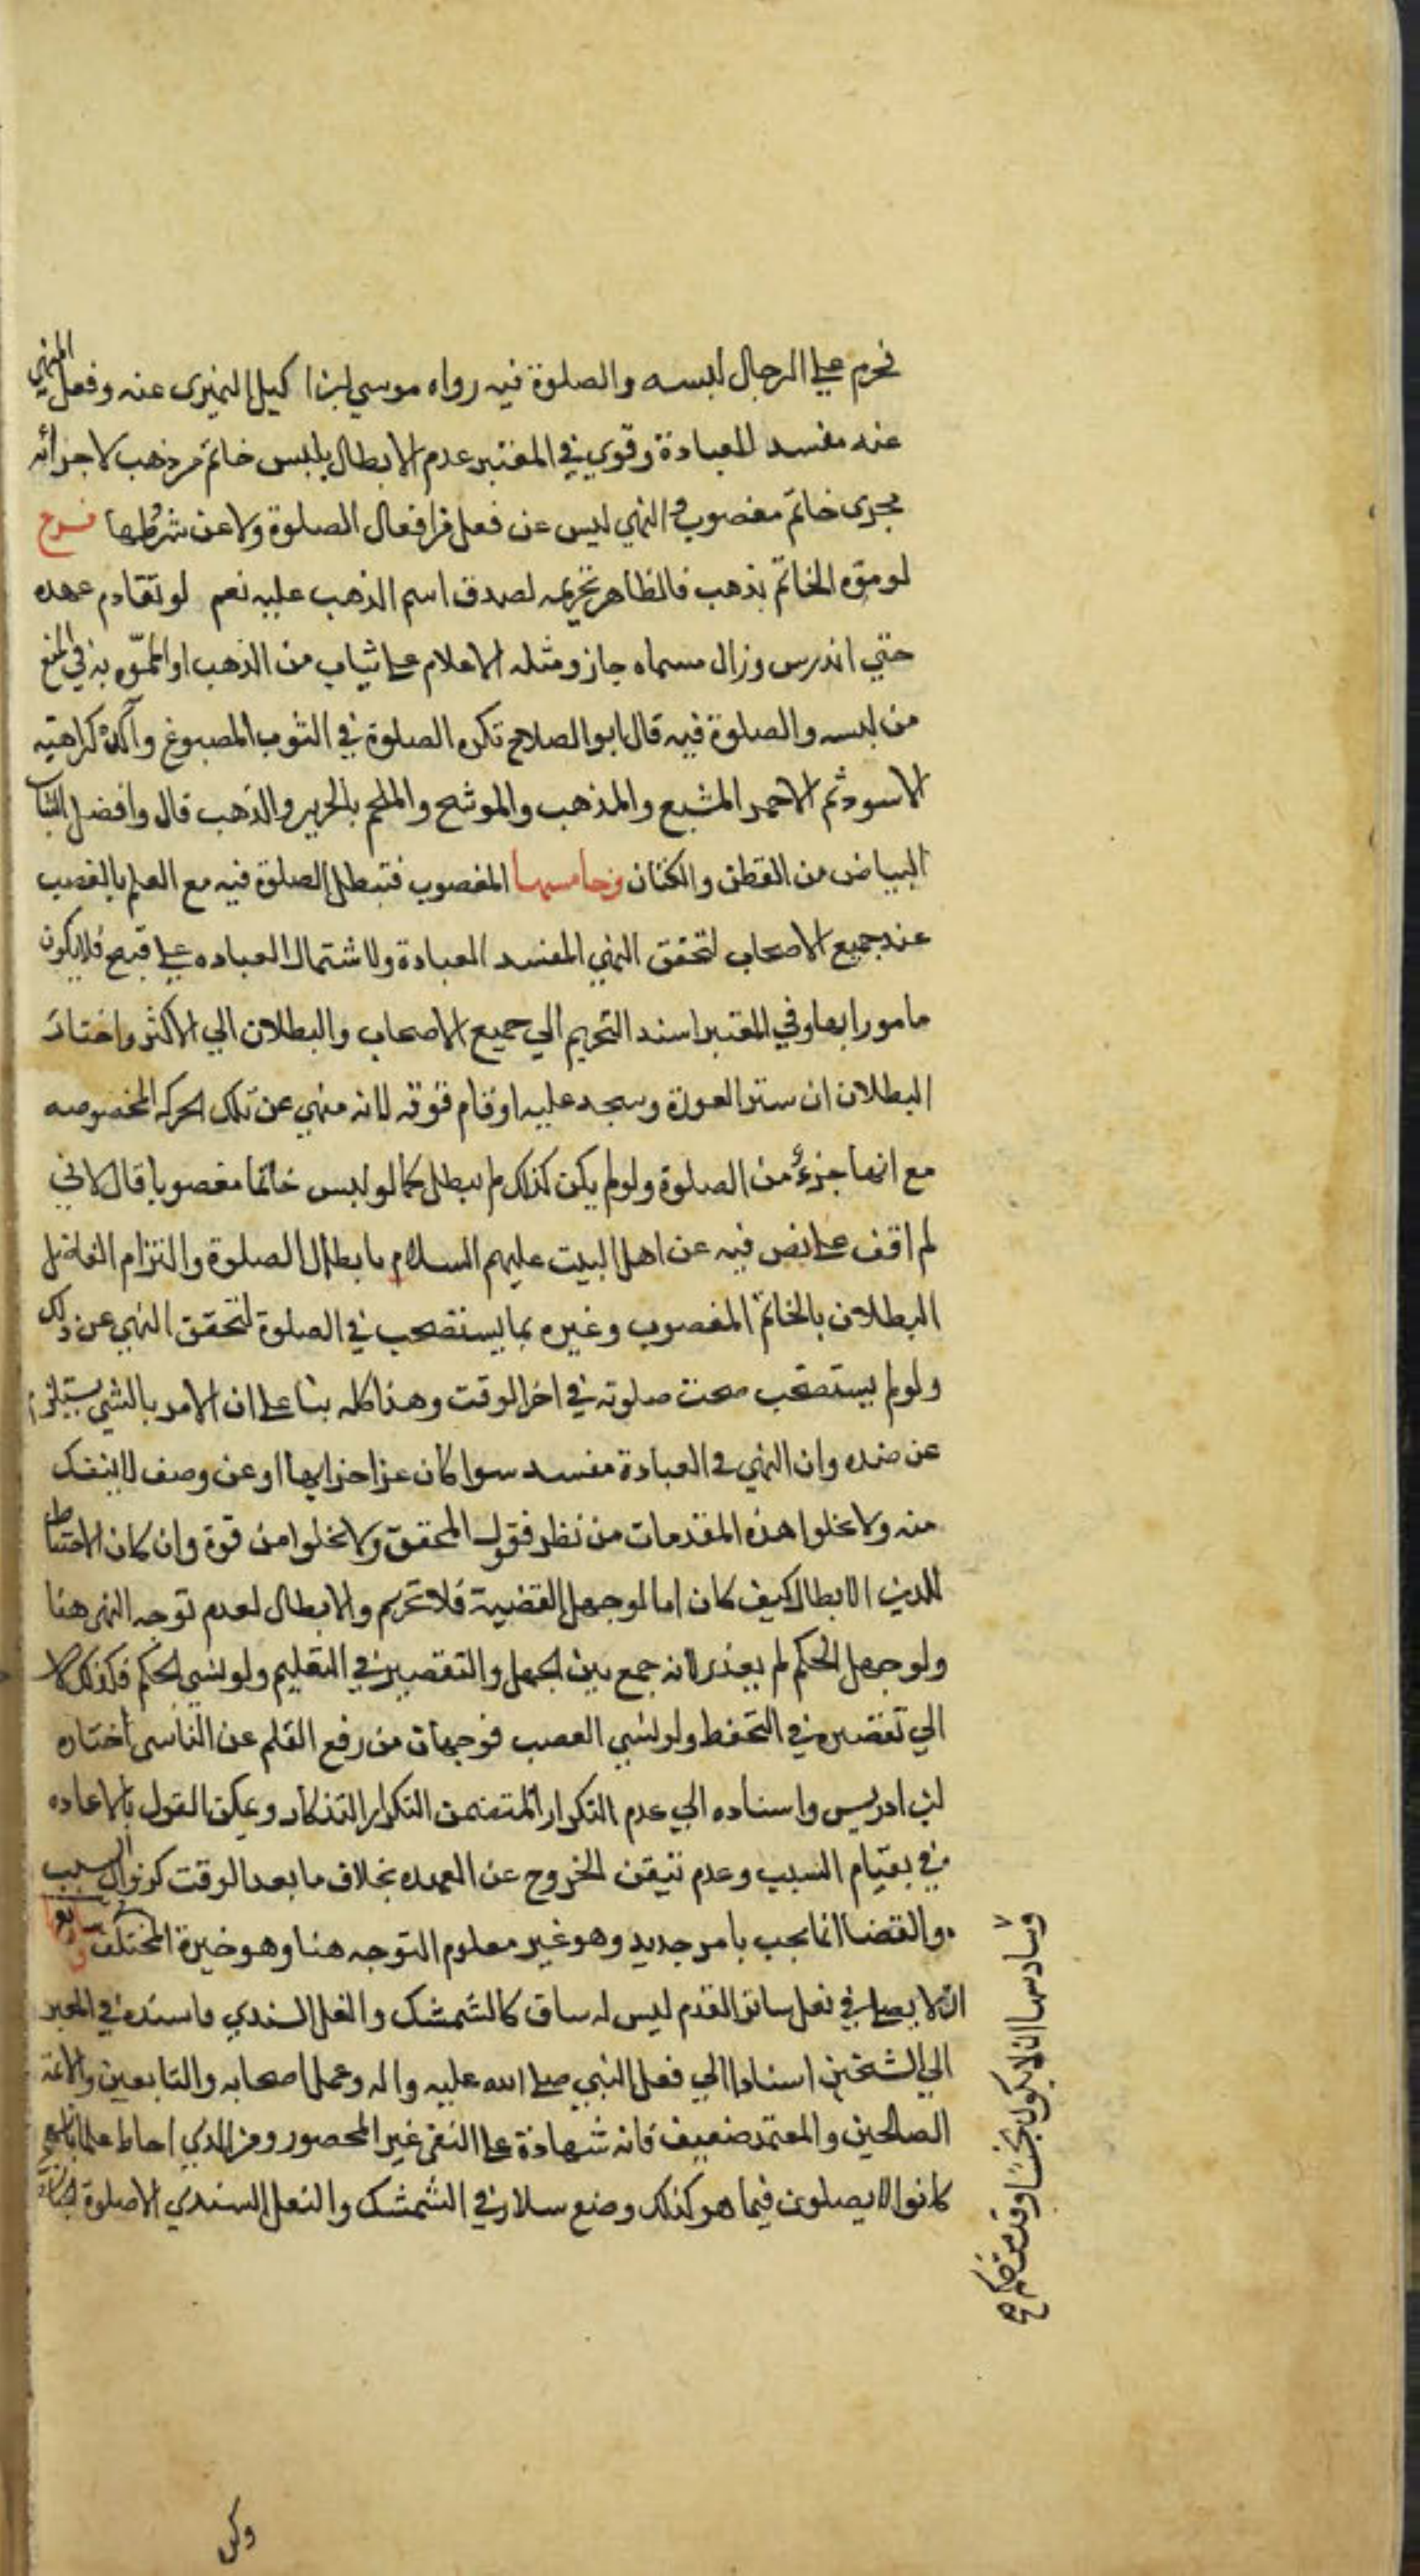 فحرم على الرجال لبسه والصلوة فيه رواه موسي بن اكيل النميرى عنه وفعل المنهي
عنه مفسد للعبادة وقوي في المعتبر عدم الابطال بلبس خاتم من ذهب لاجرائه
مجرى خاتم مغصوب والنهي ليس عن فعل من افعال الصلوة ولا عن شرطها فرع
لو موّه الخاتم بذهب فالظاهر تحريمه لصدق اسم الذهب عليه نعم لو تقادم عهده
حتي اندرس وزال مسماه جاز ومثله الاعلام على الثياب من الذهب او المموّه به في المنع
من لبسه والصلوة فيه قال ابو الصلاح تكره الصلوة في الثوب المصبوغ وآكده كراهية
الاسود ثم الاحمر المشبع والمذهب والموشح والملحم بالحرير والذهب قال وافضل الثياب
البياض من القطن والكتان وخامسها المغصوب فتبطل الصلوة فيه مع العلم بالغصب
عند جميع الاصحاب لتحقق النهي المفسد للعبادة ولاشتمال العباده على قبيح فلا يكون
مامورا بها وفي المعتبر اسند التحريم الي جميع الاصحاب والبطلان الي الاكثر واختار
البطلان ان ستر العورة وسجد عليه او قام فوقه لانه منهي عن تلك الحركه المخصوصه
مع انها جزءٌ من الصلوة ولو لم يكن كذلك لم تبطل كما لو لبس خاتما مغصوبا قال لاني
لم اقف على نص فيه عن اهل البيت عليهم السلام بابطال الصلوة والتزام الفاضل
البطلان بالخاتم المغصوب وغيره مما يستصحب في الصلوة لتحقق النهي عن ذلك
ولو لم يستصحب صحت صلوته في اخر الوقت وهذا كله بنا على ان الامر بالشي يستلزم
عن ضده وان النهي في العبادة مفسد سوا كان عن اجزايها او عن وصف لا ينفك
منه ولا يخلوا هذه المقدمات من نظر فقول المحقق ولا يخلوا من قوة وان كان الاحتياط
للدين الابطال كيف كان اما لو جهل القضية فلا تحريم ولا ابطال لعدم توجه النهي هنا
ولو جهل الحكم لم يعذر لانه جمع بين الجهل والتقصير في التعليم ولو نسي الحكم فكذلك لا
الي تقصيره في التحفظ ولو نسي الغصب فوجهان من رفع القلم عن الناسى اختاره
بن ادريس واسناده الي عدم التكرار المتضمن التكرار التذكار ويمكن القول بالاعاده
في بقيام السبب وعدم تيقن الخروج عن العهده بخلاف ما بعد الوقت كزوال السبب
والقضا انما يجب بامر جديد وهو غير معلوم التوجه هنا وهو خيرة المختلف وسابعها
ان لا يصلى في نعل ساتر القدم ليس له ساق كالشمشك والنعل السندي واسنده في المعتبر
الي الشيخين استنادا الي فعل النبي صلى الله عليه واله وعمل اصحابه والتابعين والائمة
الصالحين والمعتمد ضعيف فانه شهادة على النفى غير المحصور ومن الذي احاط علما بانهم
كانوا لا يصلون فيما هو كذلك ومنع سلار في الشمشك والنعل السندي الا صلوة الجنازة
وسادسها ان لا يكون نجسا وقد تقدم حكمه صح
وكل